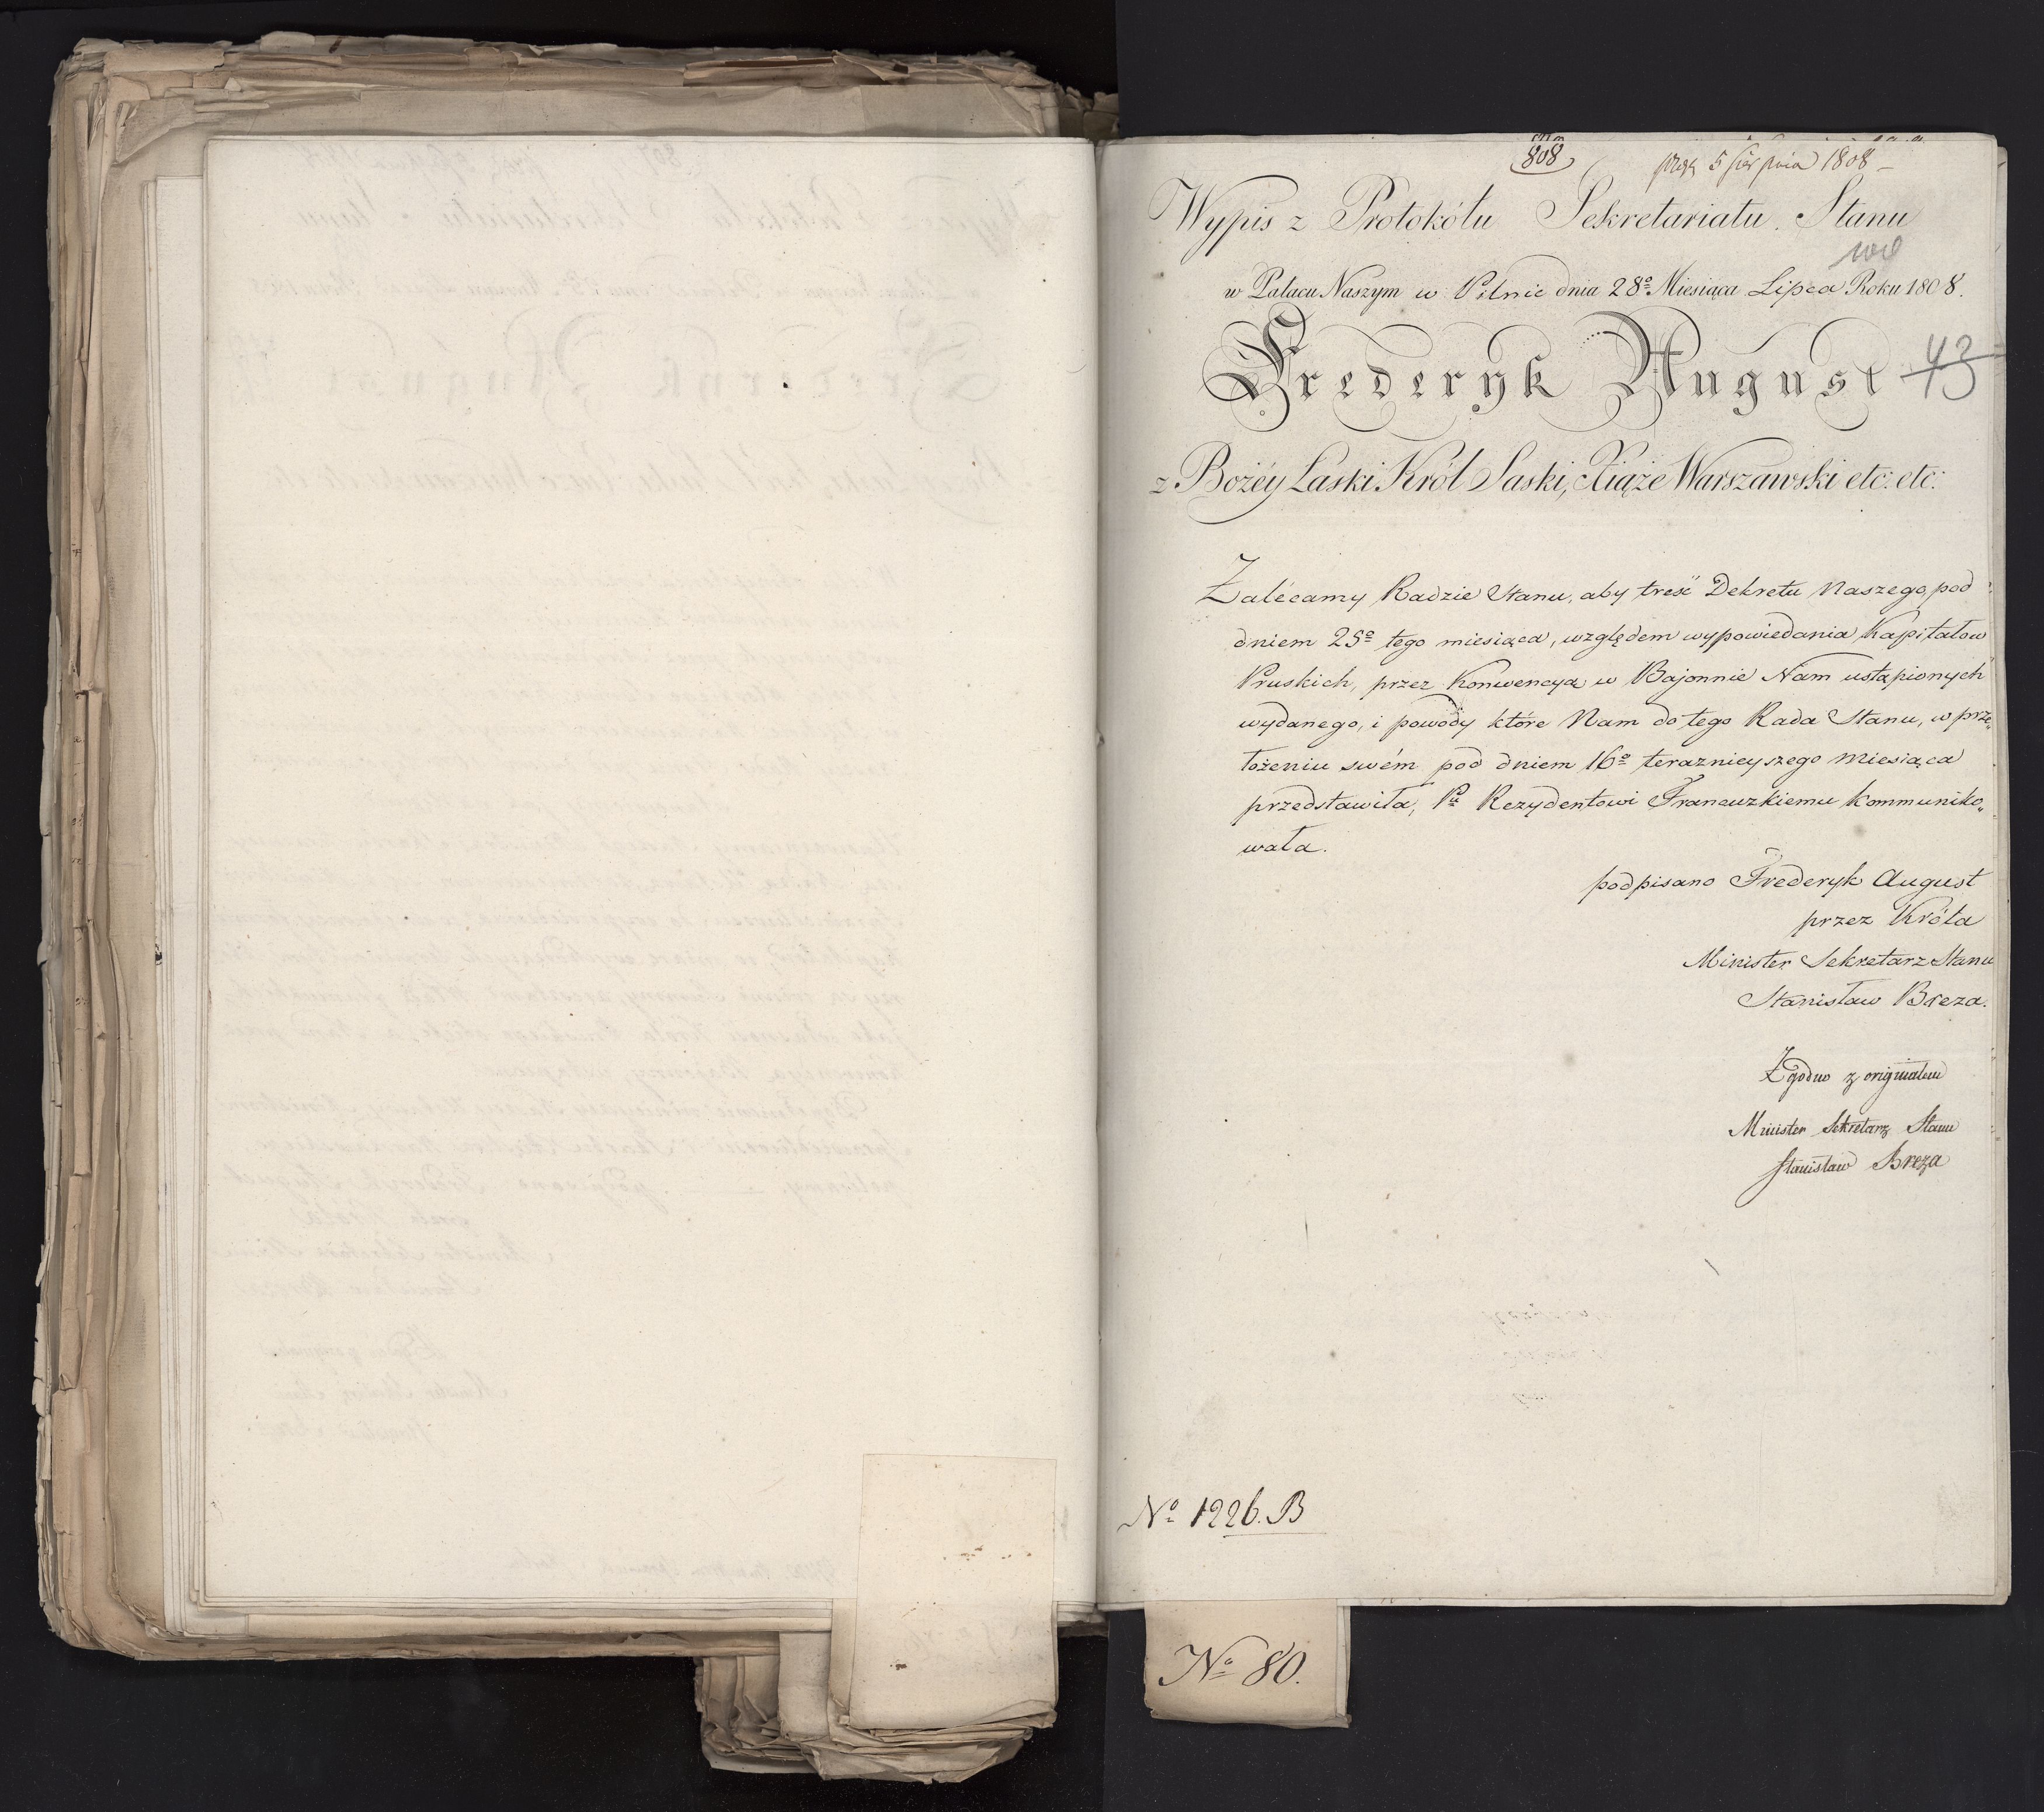 808
5 Sierpnia 1808 –
Wypis z Protokółu Sekretariatu Stanu
w Pałacu Naszym w Pilnic dnia 28º Miesiąca Lipca Roku 1808.
Frederyk August
43
z Bożéy Łaski Król Saski, Xiąże Warszawski etc: etc:
Zalécamy Radzie Stanu, aby treść Dekretu Naszego, pod
dniem 25º tego miesiąca, względem wypowiedania Kapitałow
Pruskich, przez Konwencyą w Bajonnie Nam ustąpionych
wydanego, i powody które Nam do tego Rada Stanu, w prze„
łożeniu swém pod dniem 16º teraznieyszego Miesiąca
przedstawiła, Pu Rezydentowi Francuzkiemu kommuniko„
wała.
podpisano Frederyk August
przez Króla
Minister Sekretarz Stanu
Stanisław Breza.
Zgodno z originałem
Minister Sekretarz Stanu
Stanisław Breza
Nº 1226. B
Nº 80.